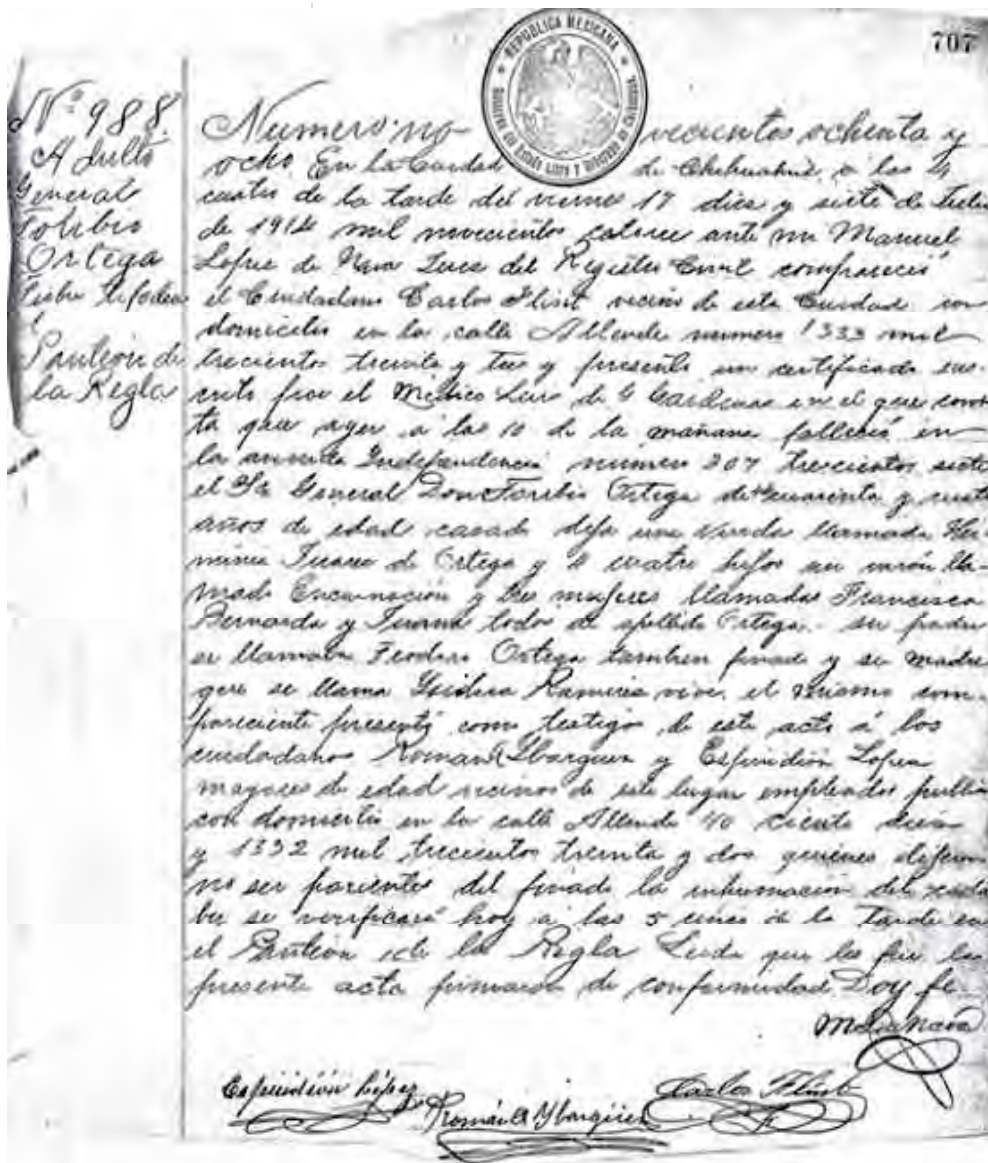 707
REPUBLICA MEXICANA
Nº 988.
Adulto
General
Toribio
Ortega
Fiebre tifoidea
Panteón de
la Regla
Numero no- vecientos ochenta y
ocho En la Ciudad de Chihuahua, a las 4
cuatro de la tarde del viernes 17 diez y siete de Julio
de 1914 mil novecientos catorce ante mi Manuel
Lopez de Nava Juez del Registro Civil compareció
el Ciudadano Carlos Flint vecino de esta Ciudad con
domicilio en la calle Allende numero 1333 mil
trecientos treinta y tres y presento un certificado sus-
crito por el Médico Luis de G Cardenas en el que cons
ta que ayer a las 10 de la mañana falleció en
la avenida Independencia número 307 trescientos siete
el Sr General Don Toribio Ortega de cuarenta y
años de edad casado deja una viuda llamada Her-
minia Juarez de Ortega y 4 cuatro hijos un varón lla-
mado Encarnación y tres mujeres llamadas Francisca
Bernarda y Juana todos de apellido Ortega.- su padre
se llamaba Teodoro Ortega tambien finado y su madre
que se llama Ysidra Ramires vive, el mismo com-
pareciente presentó como testigos de este acto á los
ciudadanos Roman Ybarguen y Espiridión Lopez
mayores de edad vecinos de este lugar empleados publi
con domicilio en la calle Allende ciento diez
y 1332 mil trecientos treinta y dos quienes dijeron
no ser parientes del finado la inhumacion del cadá
ber se verificará hoy a las 5 cinco de la tarde en
el Panteon de la Regla Leida que les fue la
presente acta firmaron de conformidad. Doy fe.
M L de Nava
Espiridión López
Román Ybargüen
Carlos Flint